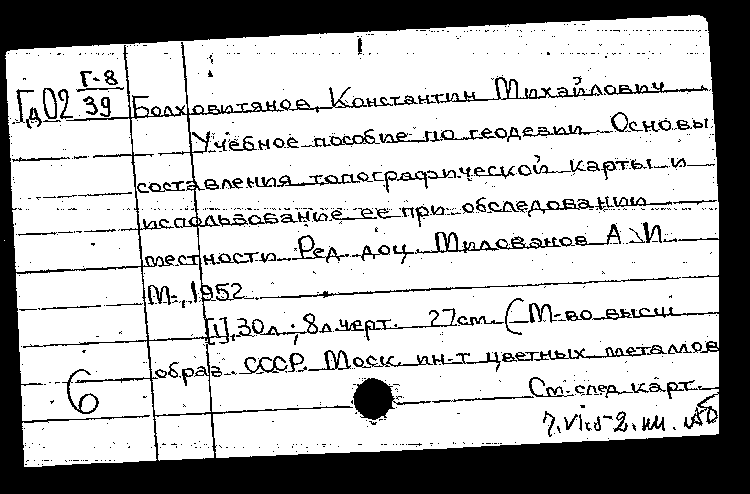 Г-8
Гд02 39 Болховитянов, Константин Михайлович
Учебное пособие по геодезии Основы
составления топографической карты и
использование ее при обследовании
местности Ред. доц. Милованов А. И.
М., 1952
[1], 30л.; 8л.черт. 27см. (М-во высш
образ. СССР. Моск. ин-т цветных металлов
6
См. след. карт.